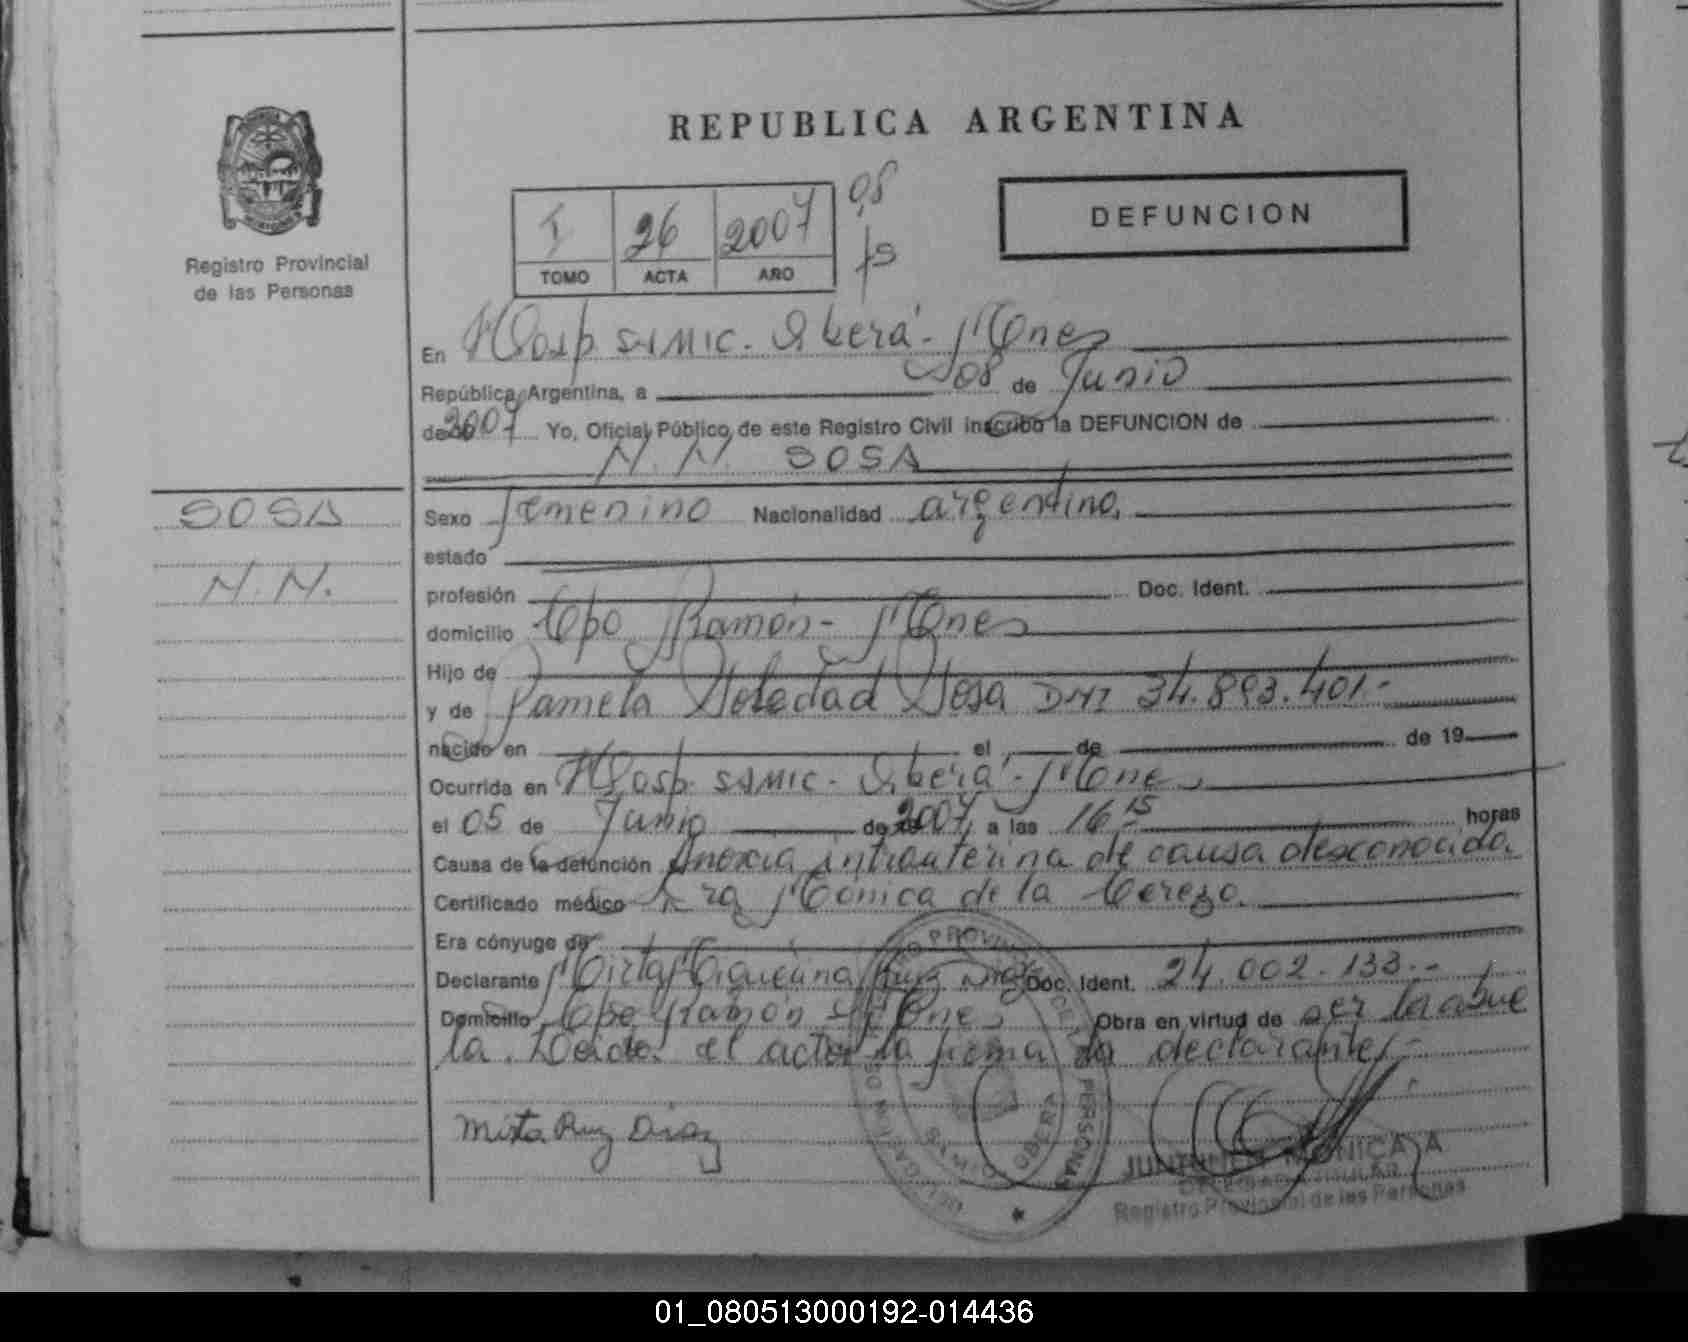 REPUBLICA ARGENTINA
Registro Provincial
de las Personas
I 26 2007 08
TOMO ACTA AÑO
DEFUNCION
En Hosp. SAMIC. Oberá - Mnes
República Argentina, a 08 de Junio
de 2007 Yo, Oficial Público de este Registro Civil inscribo la DEFUNCION de
N. N. SOSA
SOSA
N. N.
Sexo femenino Nacionalidad argentina,
estado
profesión Doc. Ident.
domicilio Cpo. Ramón - Mnes
Hijo de
y de Pamela Soledad Sosa DNI 34.893.401.-
nacido en el de de 19
Ocurrida en Hosp. SAMIC - Oberá - Mnes
el 05 de Junio de 2007, a las 16 15 horas
Causa de la defunción Anoxia intrauterina de causa desconocida.
Certificado médico Dra Mónica de la Cereza.
Era cónyuge de
Declarante Mirta Ruiz Diaz Doc. Ident. 24.002.133.-
Domicilio Cpo Ramón Mnes Obra en virtud de ser la abue
la. Leída el acta la firma la declarante.-
Mirta Ruiz Diaz
MONICA A
Registro Provincial de las Personas
01_080513000192-014436